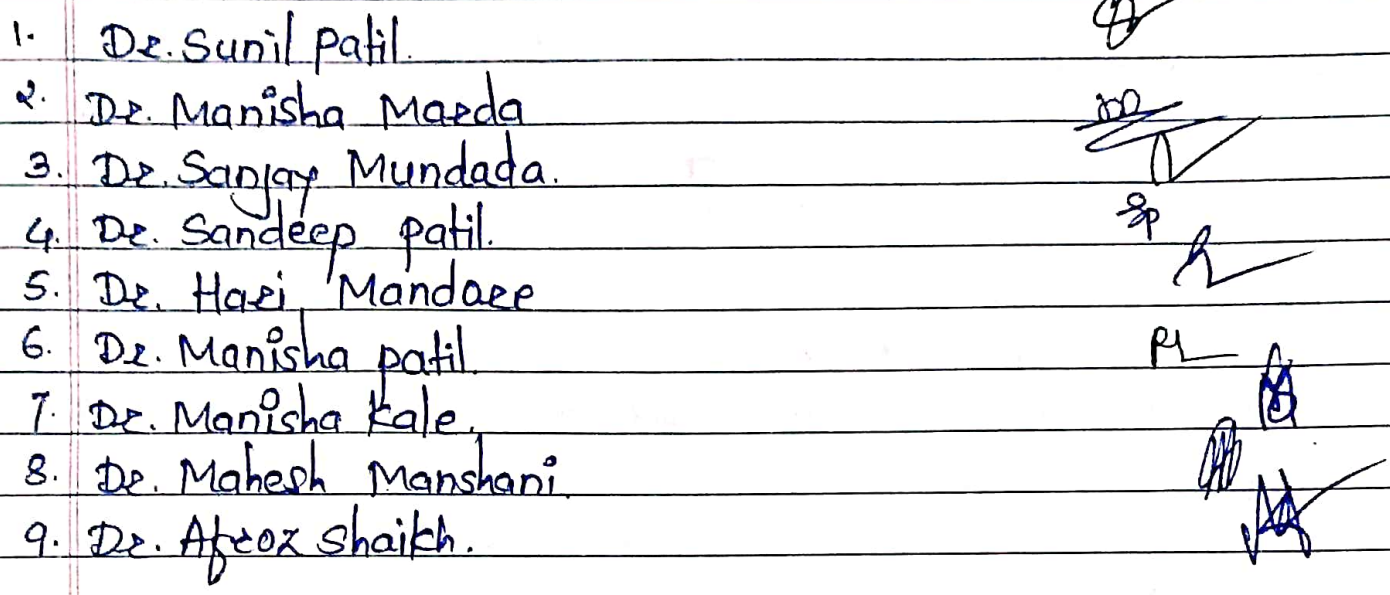 1. Dr. Sunil Patil.
2. Dr. Manisha Marda
3. Dr. Sanjay Mundada.
4. Dr. Sandeep patil.
5. Dr. Hari Mandare
6. Dr. Manisha patil
7. Dr. Manisha Kale.
8. Dr. Mahesh Manshani.
9. Dr. Afroz Shaikh.